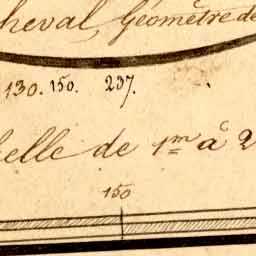 cheval, Géomètre de
130. 150. 237.
elle de 1m à 2
150